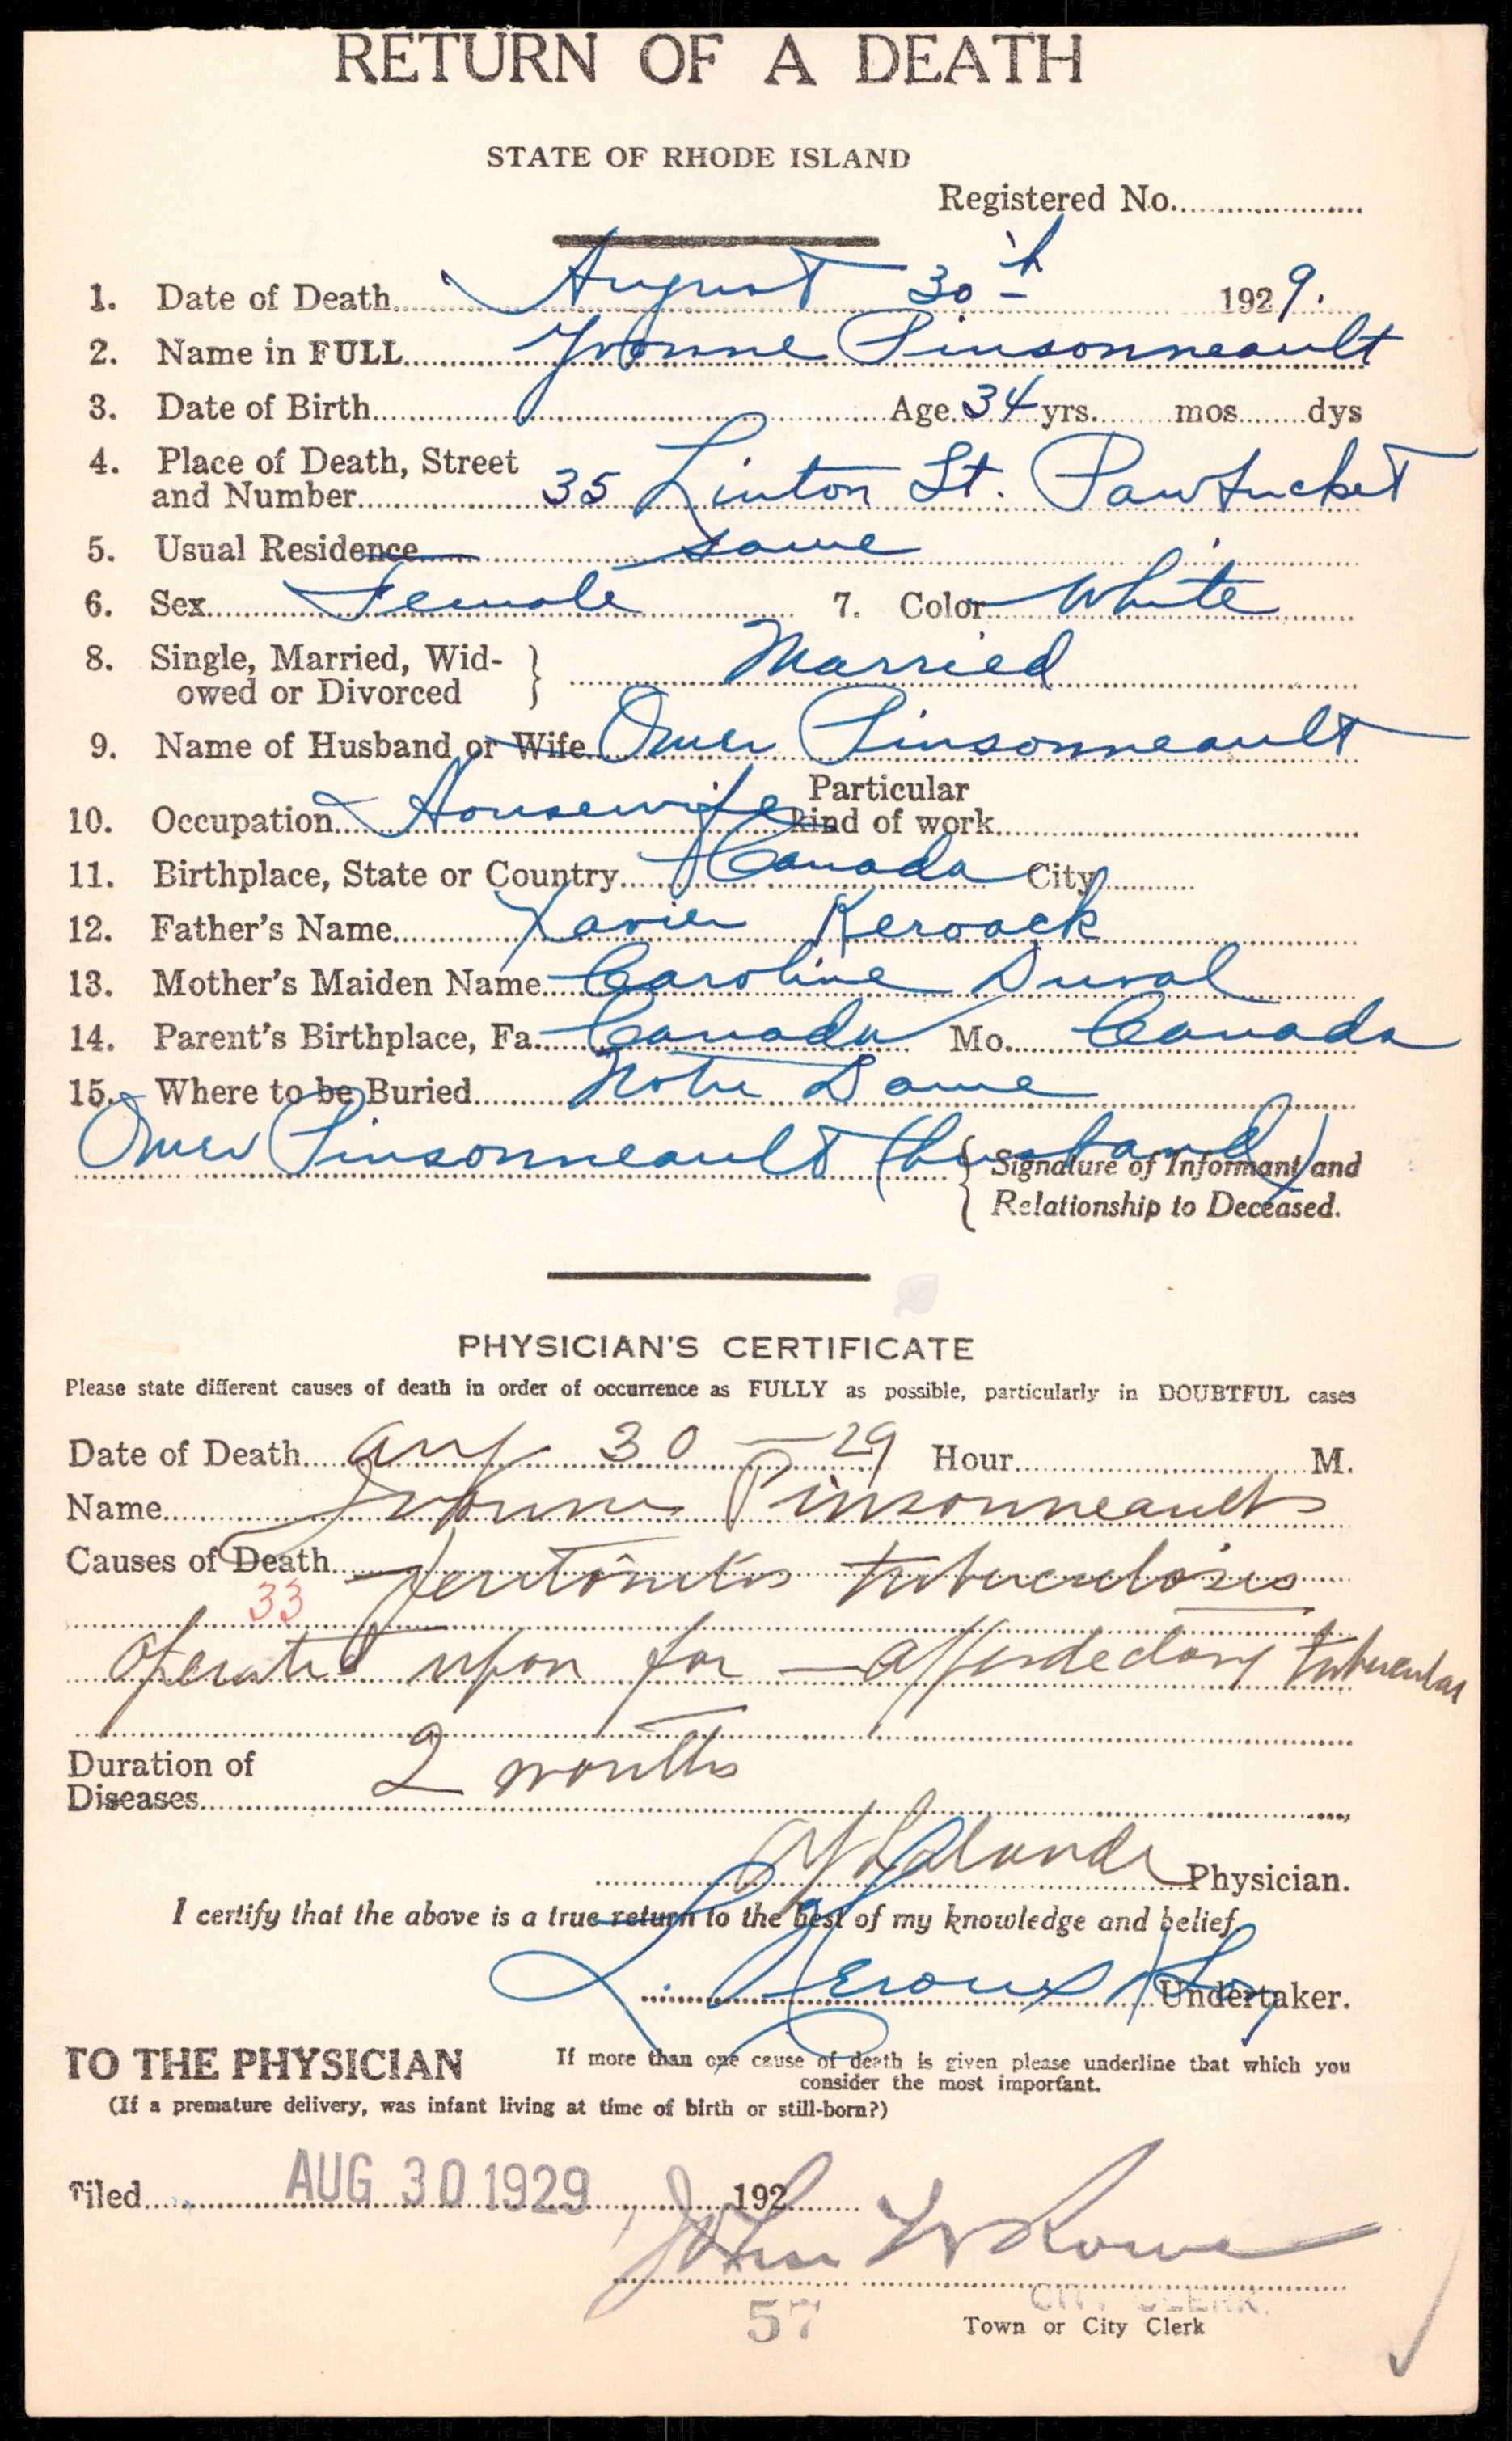 RETURN OF A DEATH
STATE OF RHODE ISLAND
Registered No.
1. Date of Death August 30th 1929.
2. Name in FULL Yvonne Pinsonneault
3. Date of Birth Age 34 yrs. mos. dys
4. Place of Death, Street
and Number 35 Linton St. Pawtucket
5. Usual Residence same
6. Sex Female 7. Color White
8. Single, Married, Wid-
owed or Divorced } Married
9. Name of Husband or Wife Omer Pinsonneault
Particular
10. Occupation Housewife kind of work
11. Birthplace, State or Country Canada City
12. Father's Name Xavier Keroack
13. Mother's Maiden Name Caroline Duval
14. Parent's Birthplace, Fa. Canada Mo. Canada
15. Where to be Buried Notre Dame
Omer Pinsonneault (husband) { Signature of Informant and
Relationship to Deceased.
PHYSICIAN'S CERTIFICATE
Please state different causes of death in order of occurrence as FULLY as possible, particularly in DOUBTFUL cases
Date of Death Aug 30 - 29 Hour M.
Name Yvonne Pinsonneault
Causes of Death peritonitis tuberculosis
33
operated upon for - tubercular
Duration of
Diseases 2 months
Lalonde Physician.
I certify that the above is a true return to the best of my knowledge and belief
L. Undertaker.
TO THE PHYSICIAN If more than one cause of death is given please underline that which you
consider the most important.
(If a premature delivery, was infant living at time of birth or still-born?)
Filed AUG 30 1929 192
John W Rowe
CITY CLERK.
57 Town or City Clerk